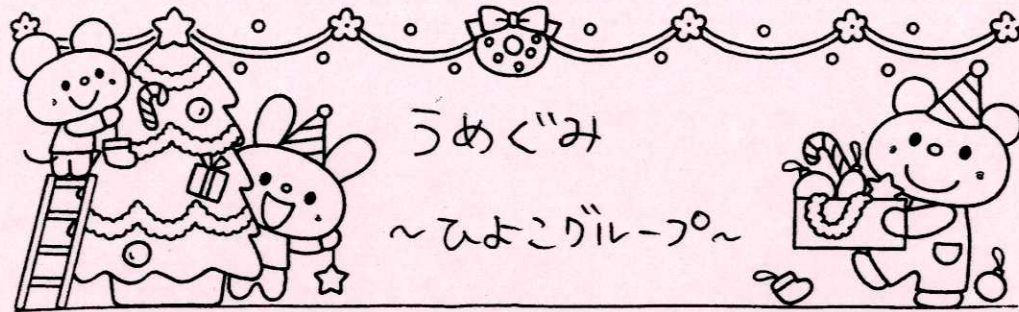 うめぐみ
～ひよこグループ～